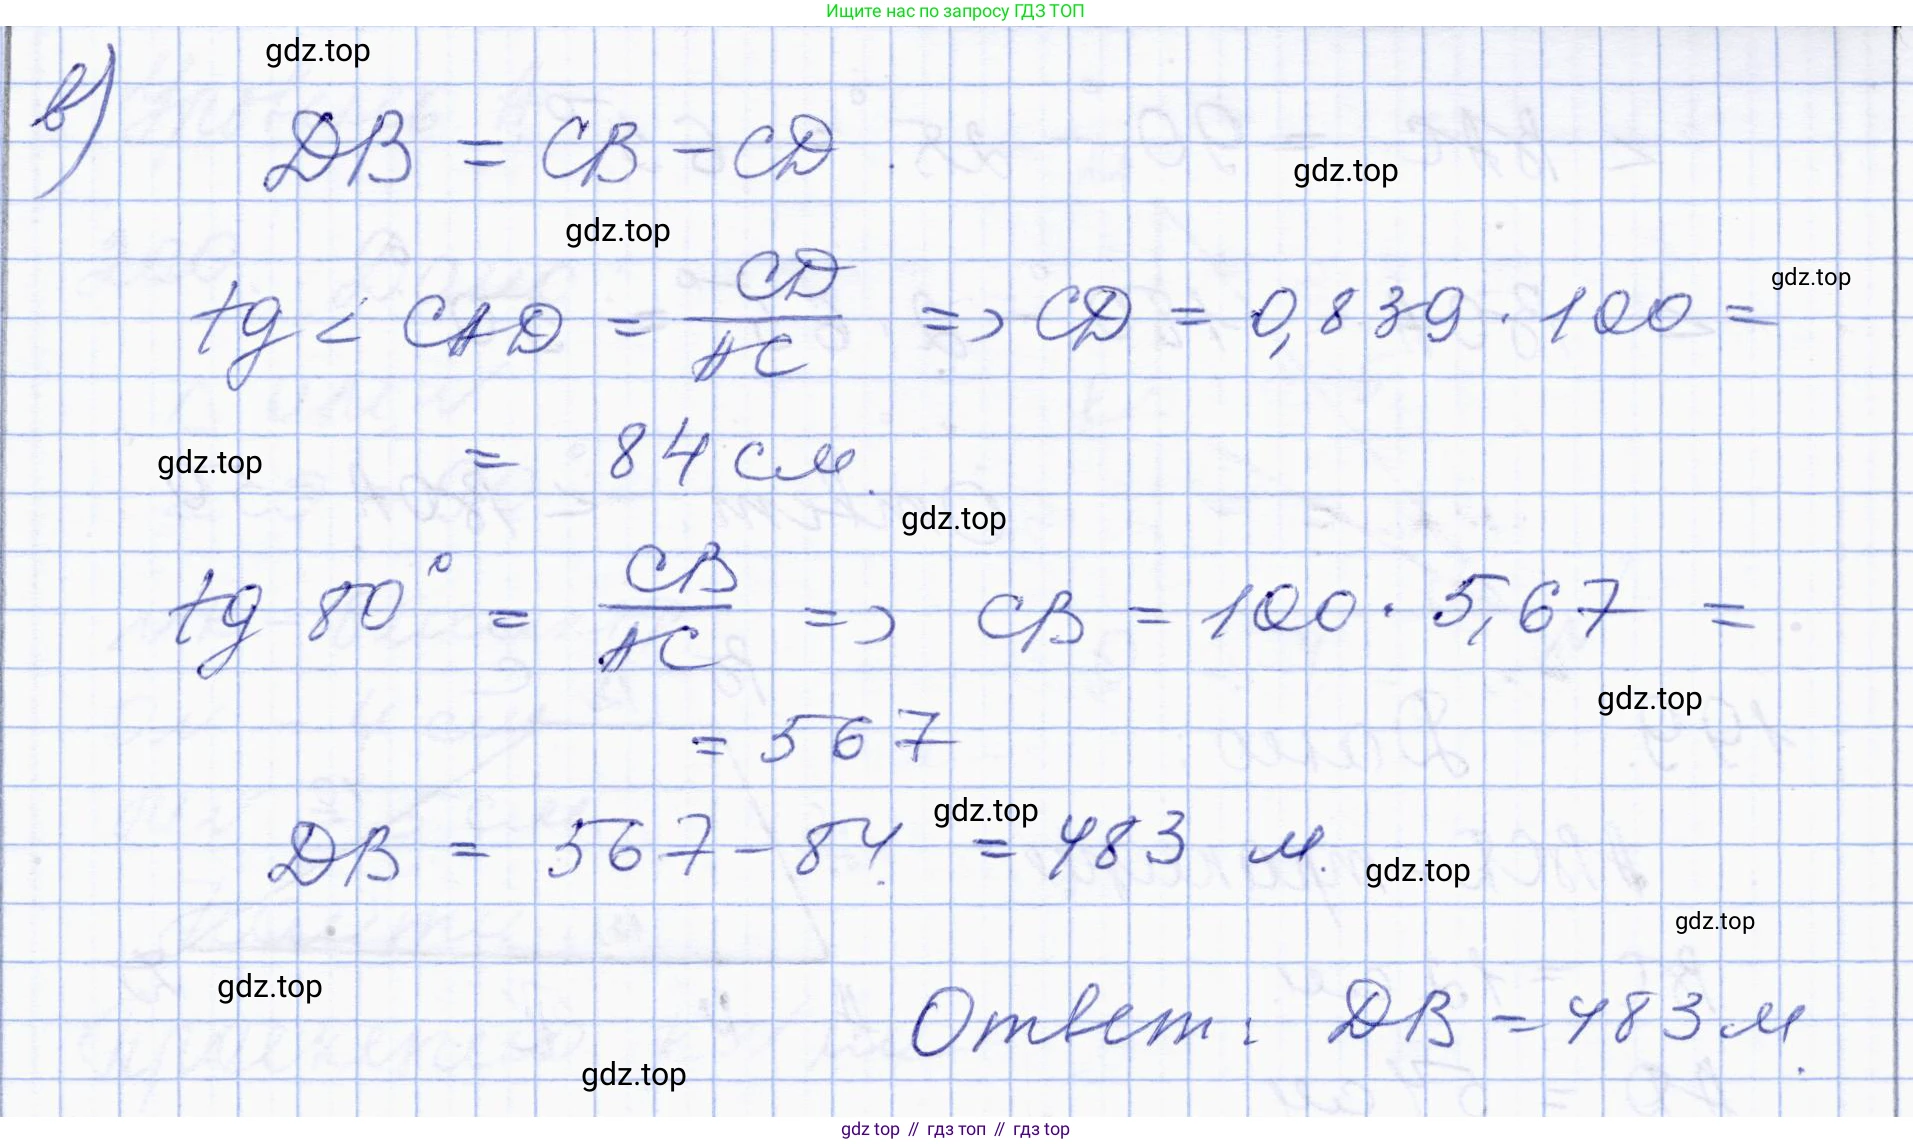 Ищите нас по запросу ГДЗ ТОП
gdz.top
в) DB = CB - CD.
gdz.top
gdz.top
tg < CAD = CD/AC => CD = 0,839 · 100 =
gdz.top
= 84 см.
gdz.top
gdz.top
tg 80° = CB/AC => CB = 100 · 5,67 =
gdz.top
= 567
gdz.top
DB = 567 - 84 = 483 м.
gdz.top
gdz.top
gdz.top
Ответ: DB = 483 м.
gdz.top
gdz.top // гдз топ // гдз top